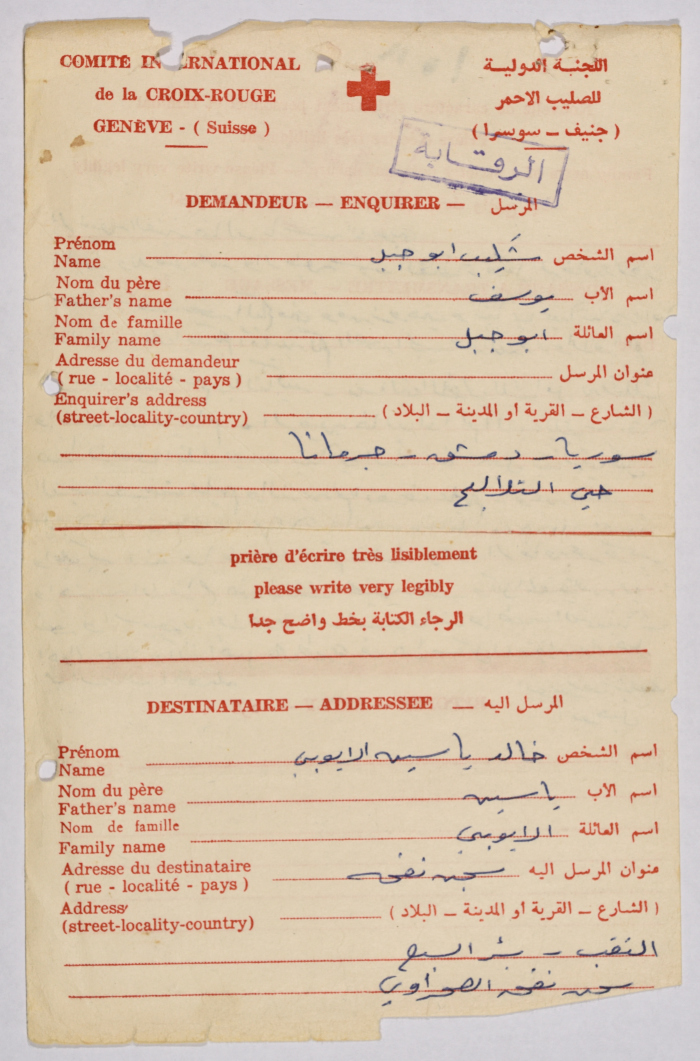 COMITÉ IN ERNATIONAL
de la CROIX-ROUGE
GENÈVE - ( Suisse )
اللجنة الدولية
للصليب الاحمر
( جنيف – سوسرا )
الرقابة
DEMANDEUR — ENQUIRER — المرسل
Prénom
Name
اسم الشخص شكيب ابو جبل
Nom du père
Father's name
اسم الأب يوسف
Nom de famille
Family name
اسم العائلة ابو جبل
Adresse du demandeur
( rue - localité - pays )
عنوان المرسل
Enquirer's address
(street-locality-country)
( الشارع – القرية أو المدينة – البلاد )
سوريا - دمشق - جرمانا
حي
prière d'écrire très lisiblement
please write very legibly
الرجاء الكتابة بخط واضح جدا
DESTINATAIRE — ADDRESSEE — المرسل اليه
Prénom
Name
اسم الشخص خالد ياسين الايوبي
Nom du père
Father's name
اسم الأب ياسين
Nom de famille
Family name
اسم العائلة الايوبي
Adresse du destinataire
( rue - localité - pays )
عنوان المرسل اليه سجن نفحه
Address
(street-locality-country)
( الشارع – القرية أو المدينة – البلاد )
النقب - بئر السبع
سجن نفحه الصحراوي